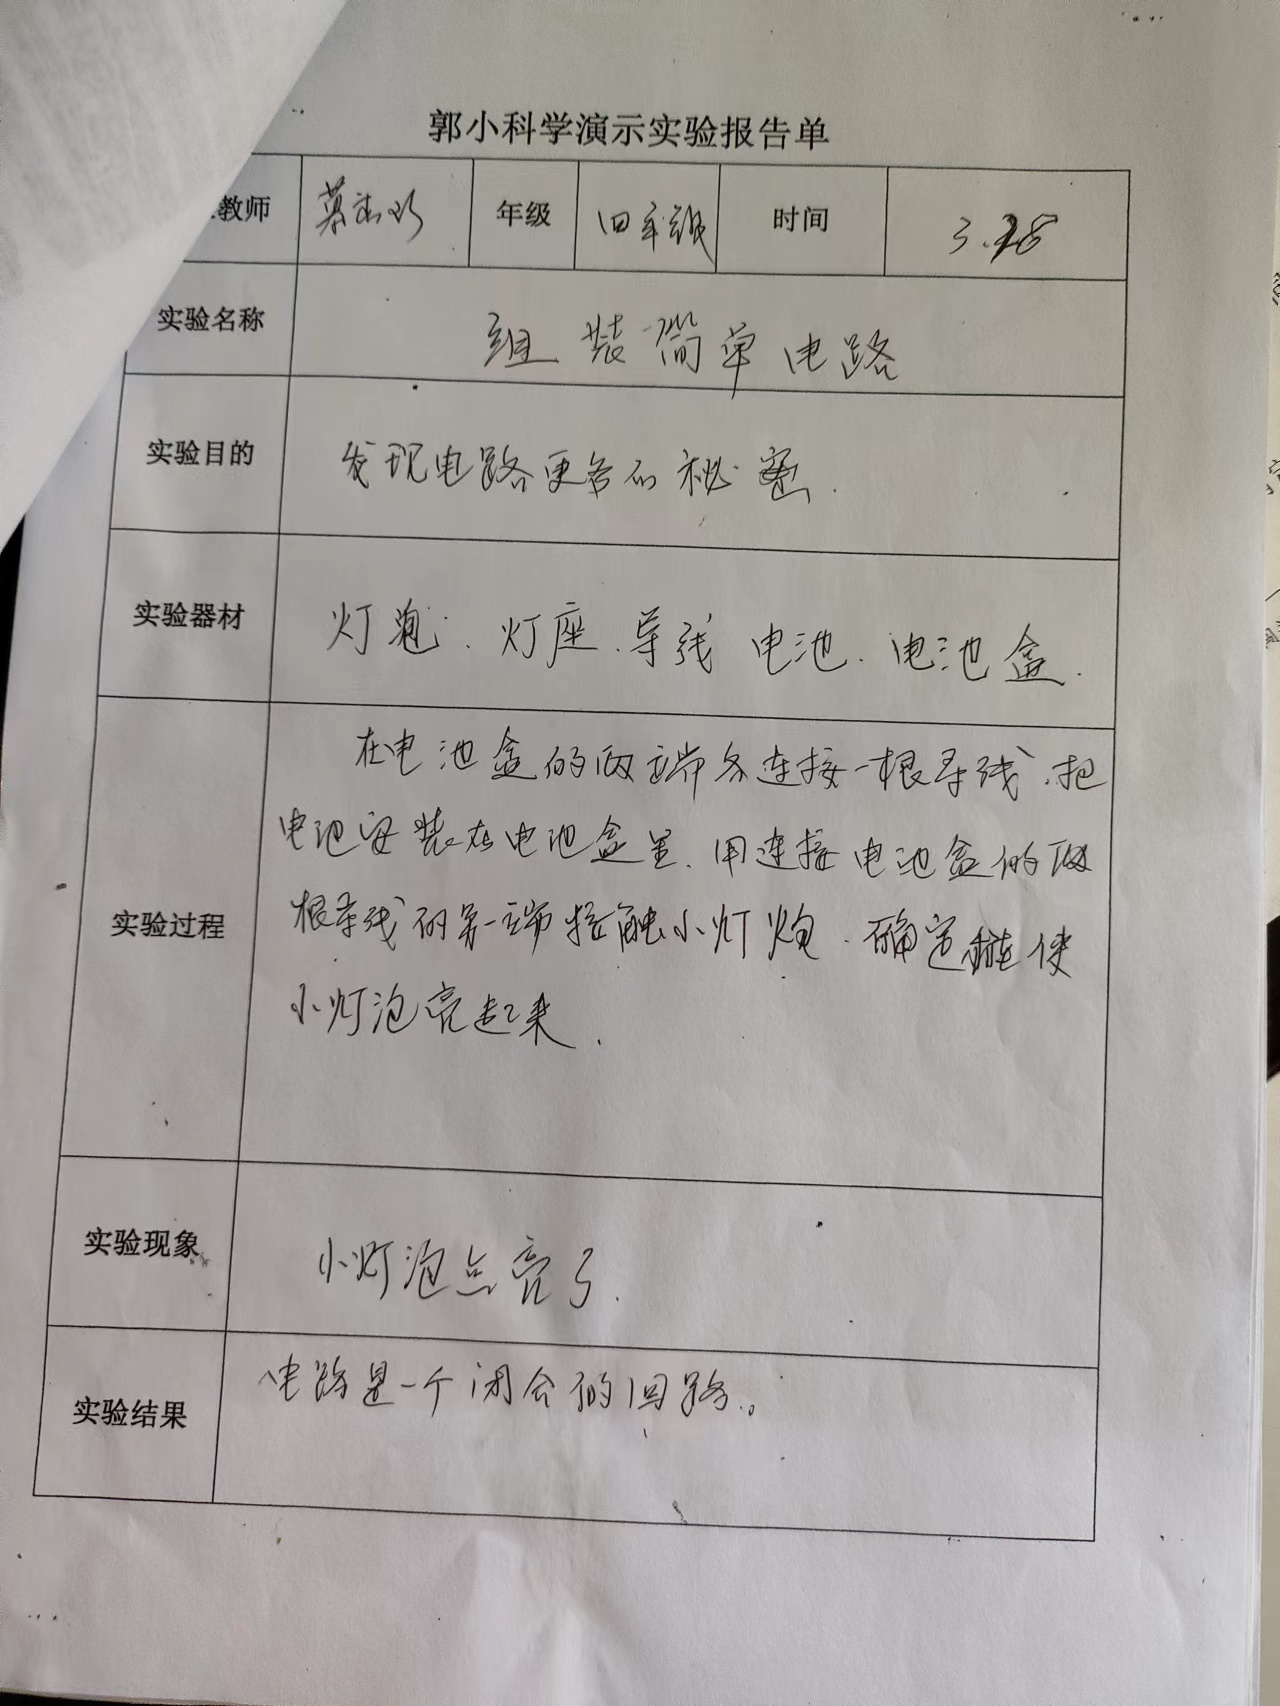 郭小科学演示实验报告单
教师 年级 四年级 时间 3.28
实验名称 组装简单电路
实验目的 发现电路更多的秘密.
实验器材 灯泡、灯座、导线 电池、电池盒.
实验过程
在电池盒的两端各连接一根导线,把
电池安装在电池盒里.用连接电池盒的两
根导线的另一端接触小灯泡.确定能使
小灯泡亮起来.
实验现象 小灯泡点亮了.
实验结果 电路是一个闭合的回路。